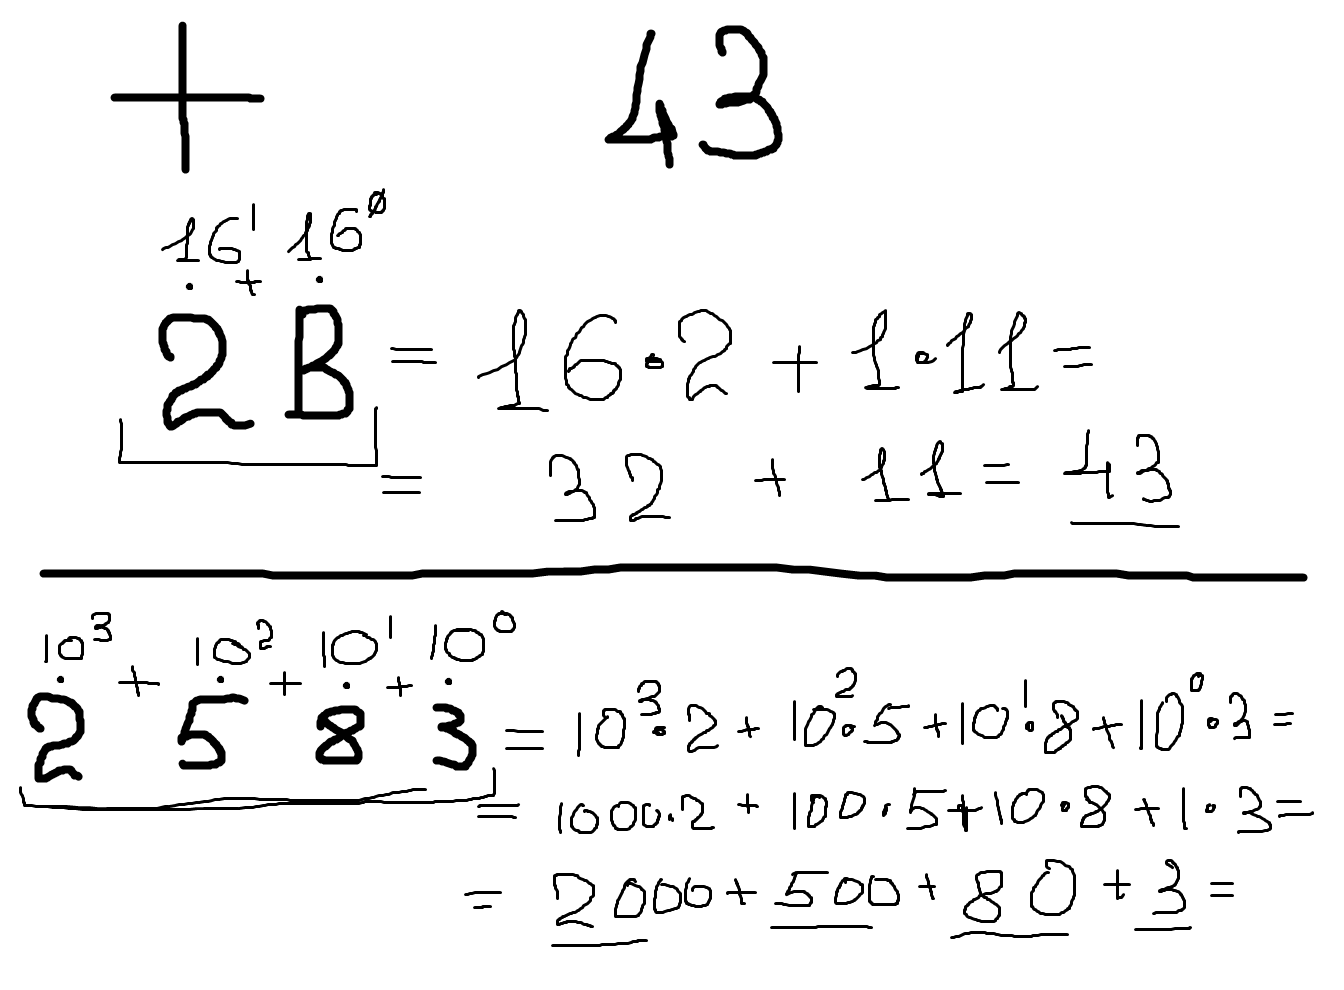 + 43
16¹ 16⁰
· + ·
2 B = 16·2 + 1·11 =
= 32 + 11 = 43
10³ 10² 10¹ 10⁰
· + · + · + ·
2 5 8 3 = 10³·2 + 10²·5 + 10¹·8 + 10⁰·3 =
= 1000·2 + 100·5 + 10·8 + 1·3 =
= 2000 + 500 + 80 + 3 =